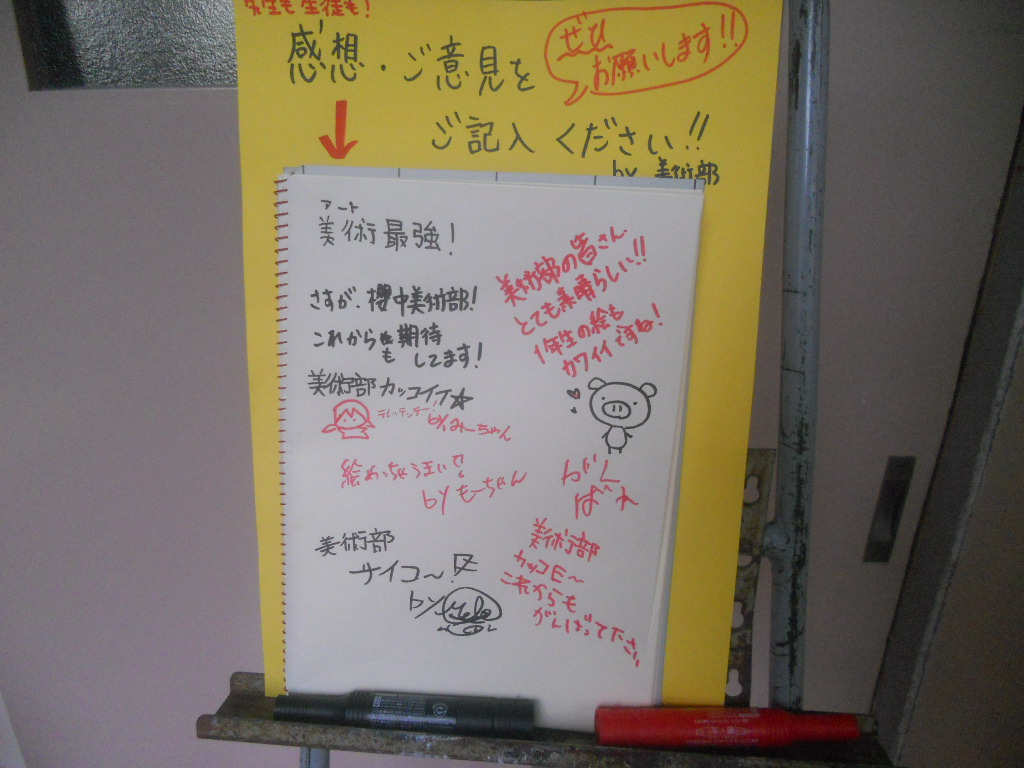 先生も生徒も!
感想・ご意見を
ぜひ
お願いします!!
ご記入ください!!
by 美術部
アート
美術最強!
さすが、櫻中美術部!
これからも期待
してます!
美術部カッコイイ☆
by みーちゃん
絵めっちゃ
by もーちゃん
美術部
サイコ〜
by
美術部の皆さん
とても素晴らしい!!
1年生の絵も
カワイイですね!
がん
ばれ
美術部
カッコE〜
これからも
がんばって下さい